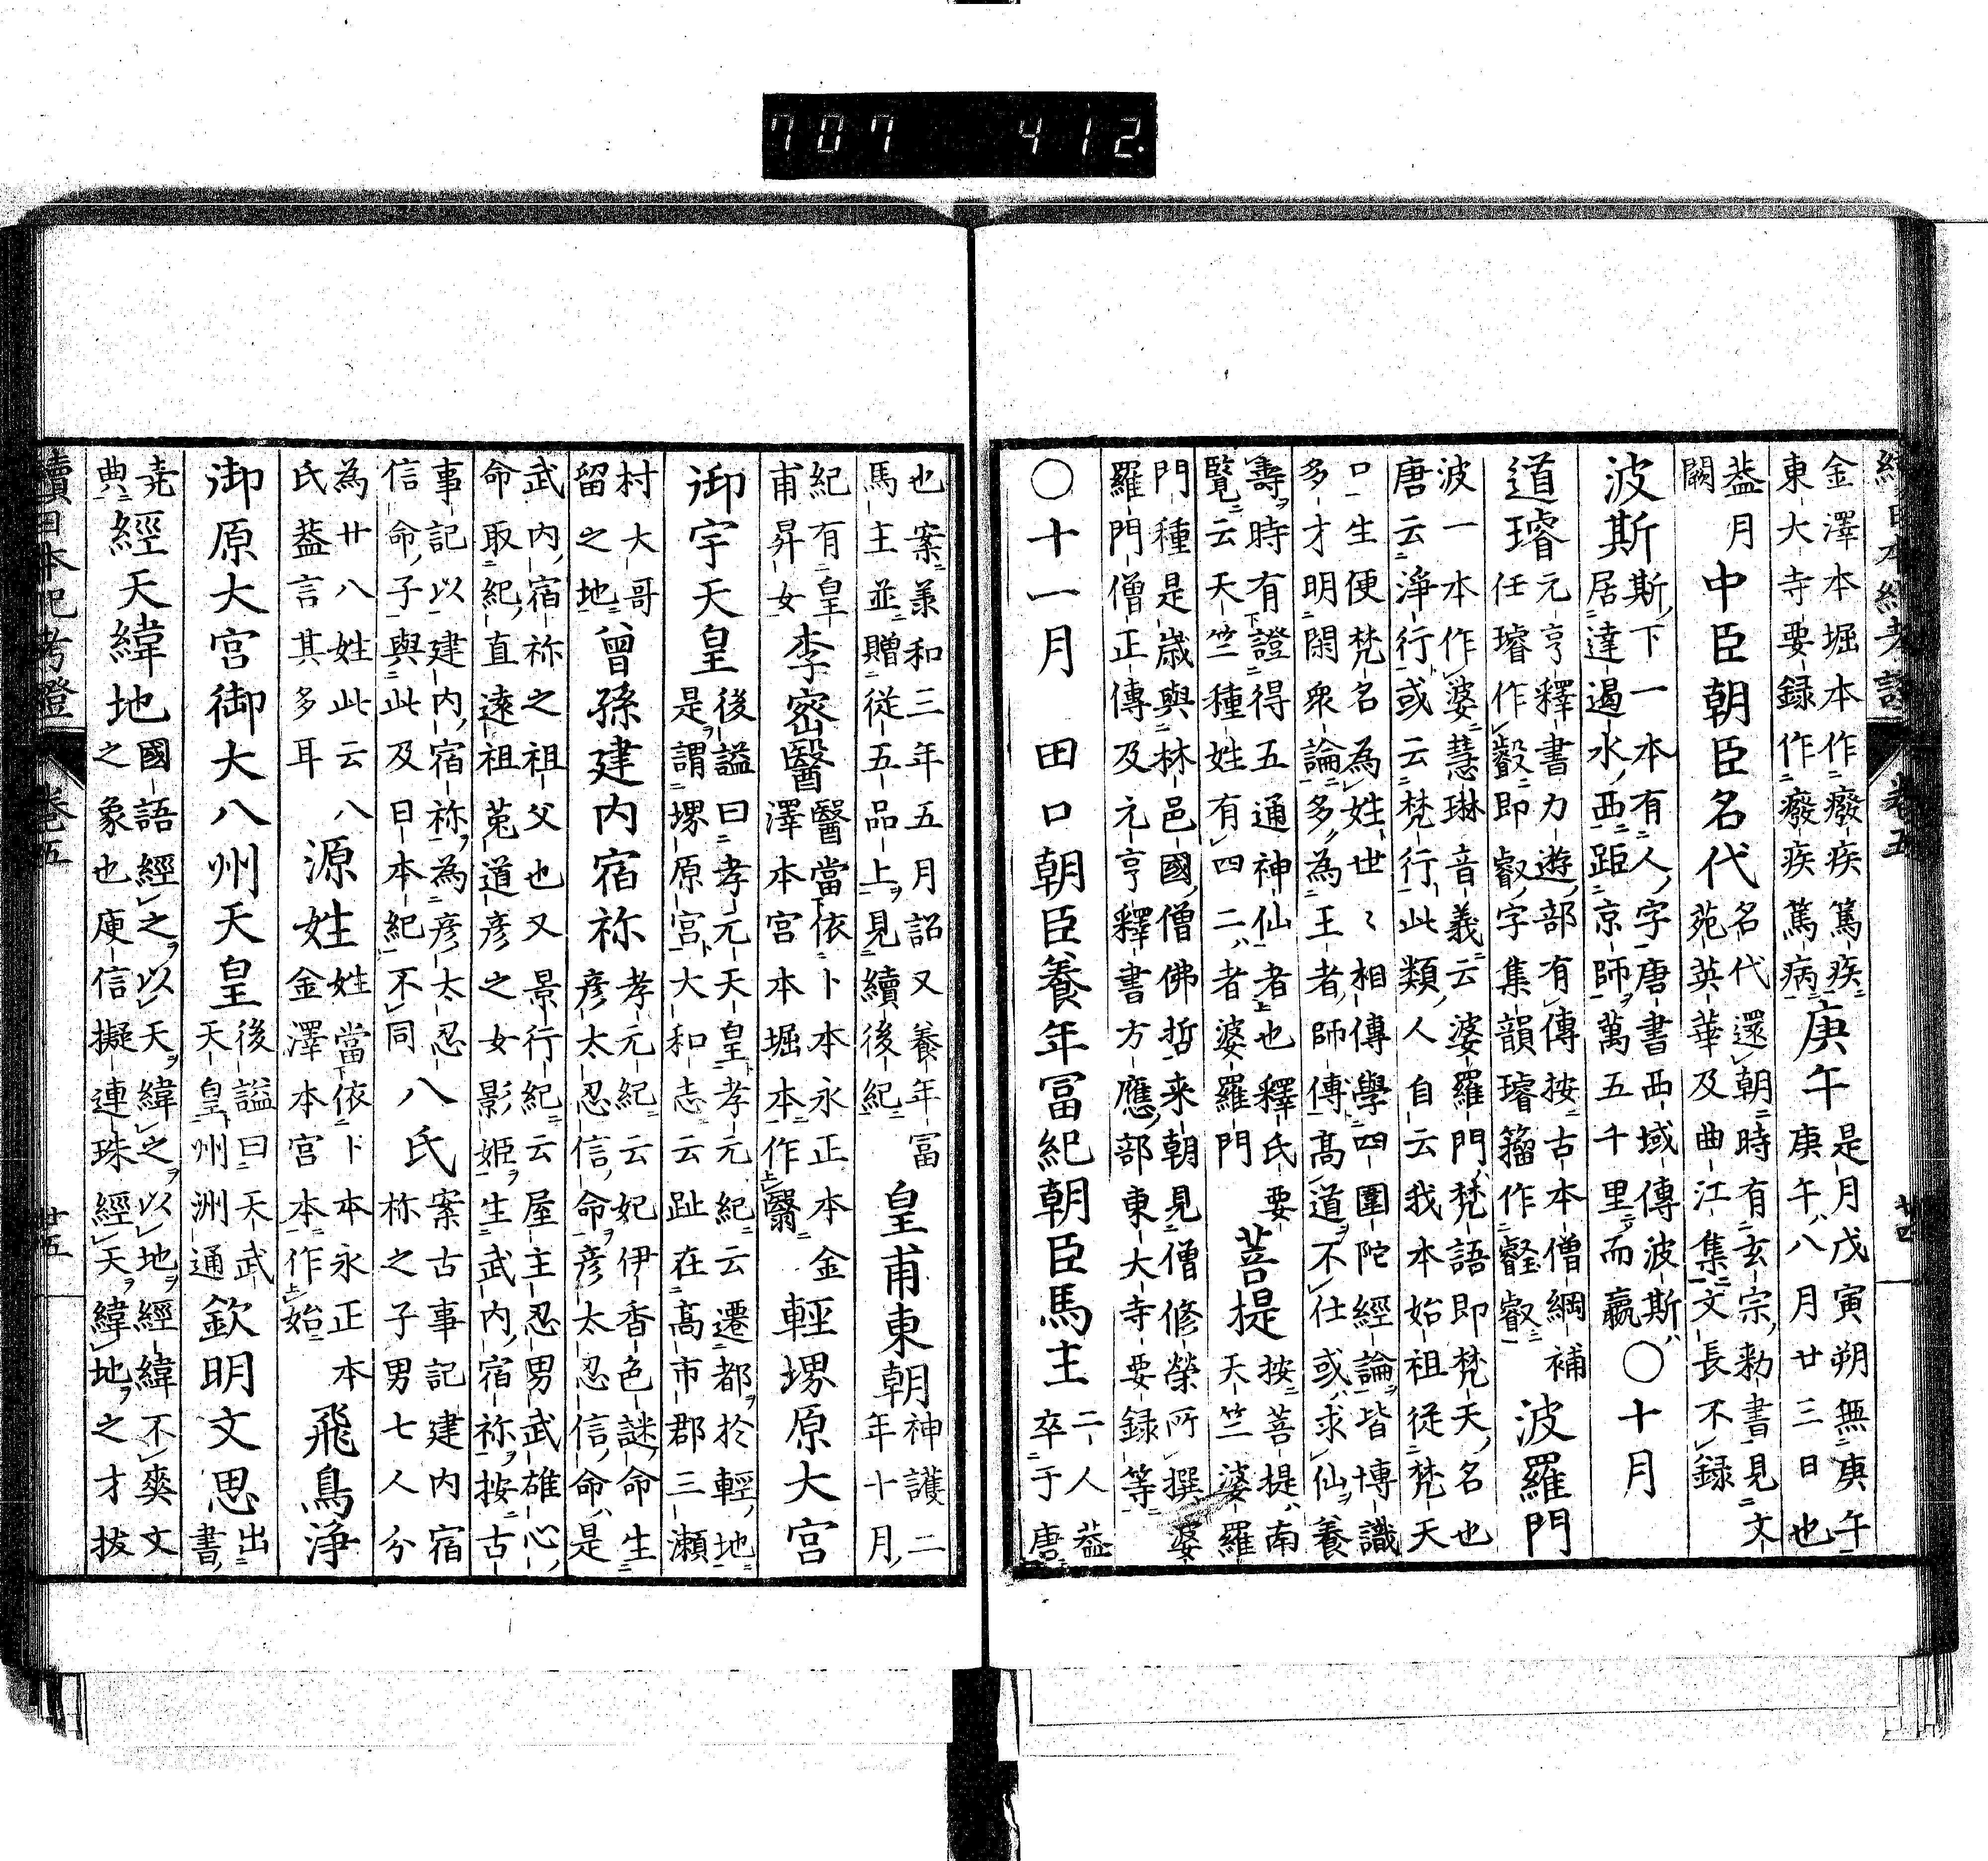 707 412
續日本紀考證 卷五 廿四
金澤本堀本作癈疾篤疾
東大寺要録作癈疾篤病
庚午
是月戊寅朔無庚午
庚午八月廿三日也
蓋月
闕
中臣朝臣名代
名代還朝時有玄宗勅書見文
苑英華及曲江集文長不録
波斯
斯下一本有人字唐書西域傳波斯
居達遏水西距京師萬五千里而贏
○十月
道璿
元亨釋書力遊部有傳按古本僧綱補
任璿作 即叡字集韻璿籀作 叡
波羅門
波一本作婆慧琳音義云婆羅門梵語即梵天名也
唐云淨行或云梵行此類人自云我本始祖從梵天
口生便梵名為姓世〻相傳學四圍陀經論皆博識
多才明閑衆論多為王者師傳高道不仕或求仙養
壽時有證得五通神仙者也釋氏要
覽云天竺種姓有四二者婆羅門
菩提
按菩提南
天竺婆羅
門種是歳與林邑國僧佛哲来朝見僧修榮所撰婆
羅門僧正傳及元亨釋書方應部東大寺要録等
○十一月 田口朝臣養年冨紀朝臣馬主
二人蓋
卒于唐
也案兼和三年五月詔又養年冨
馬主並贈從五品上見續後紀
皇甫東朝
神護二
年十月
紀有皇
甫昇女
李密醫
醫當依卜本永正本金
澤本宮本堀本作翳
輕堺原大宮
御宇天皇
後謚曰孝元天皇孝元紀云遷都於輕地
是謂堺原宮大和志云趾在高市郡三瀬
村大哥
留之地
曾孫建内宿祢
孝元紀云妃伊香色謎命生
彦太忍信命彦太忍信命是
武内宿祢之祖父也又景行紀云屋主忍男武雄心
命取紀直遠祖菟道彦之女影姫生武内宿祢按古
事記以建内宿祢為彦太忍
信命子與此及日本紀不同
八氏
案古事記建内宿
祢之子男七人分
為廿八姓此云八
氏蓋言其多耳
源姓
姓當依卜本永正本
金澤本宮本作始
飛鳥淨
御原大宮御大八州天皇
後謚曰天武
天皇州洲通
欽明文思
出
書
尭
典
經天緯地
國語經之以天緯之以地經緯不爽文
之象也庾信擬連珠經天緯地之才拔
續日本紀考證 卷五 廿五